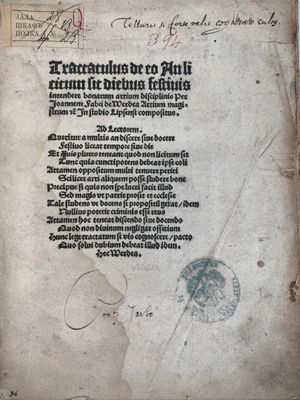 ЗАЛА
ШКАФЪ
ПОЛКА
394
Tractatulus de eo An li
citum sit diebus festiuis
intendere bonarum artium disciplinis Per
Joannem Fabri de Werdea Artium magi
strum In studio Lipsensi compositus.
Ad Lectorem.
Queritur a multis an discere siue docere
Festiuo liceat tempore siue diu
Et quis plures teneant quod non licitum sit
Tunc quia cunctipotens debeat ipse coli
Attamen oppositum multi tenuere periti
Scilicet arti aliquem posse studere bone
Precipue si quis non spe lucri facit illud
Sed magis vt patrie prosit et ecclesie
Tale studens vt docens si propositum gerat / idem
Nullius poterit criminis esse reus
Attamen hoc teneat discendo siue docendo
Quod non diuinum negligat officium
Hunc lege tractatum si vis cognoscere / pacto
Quo solui dubium debeat illud idem.
Hec Werdea.
36